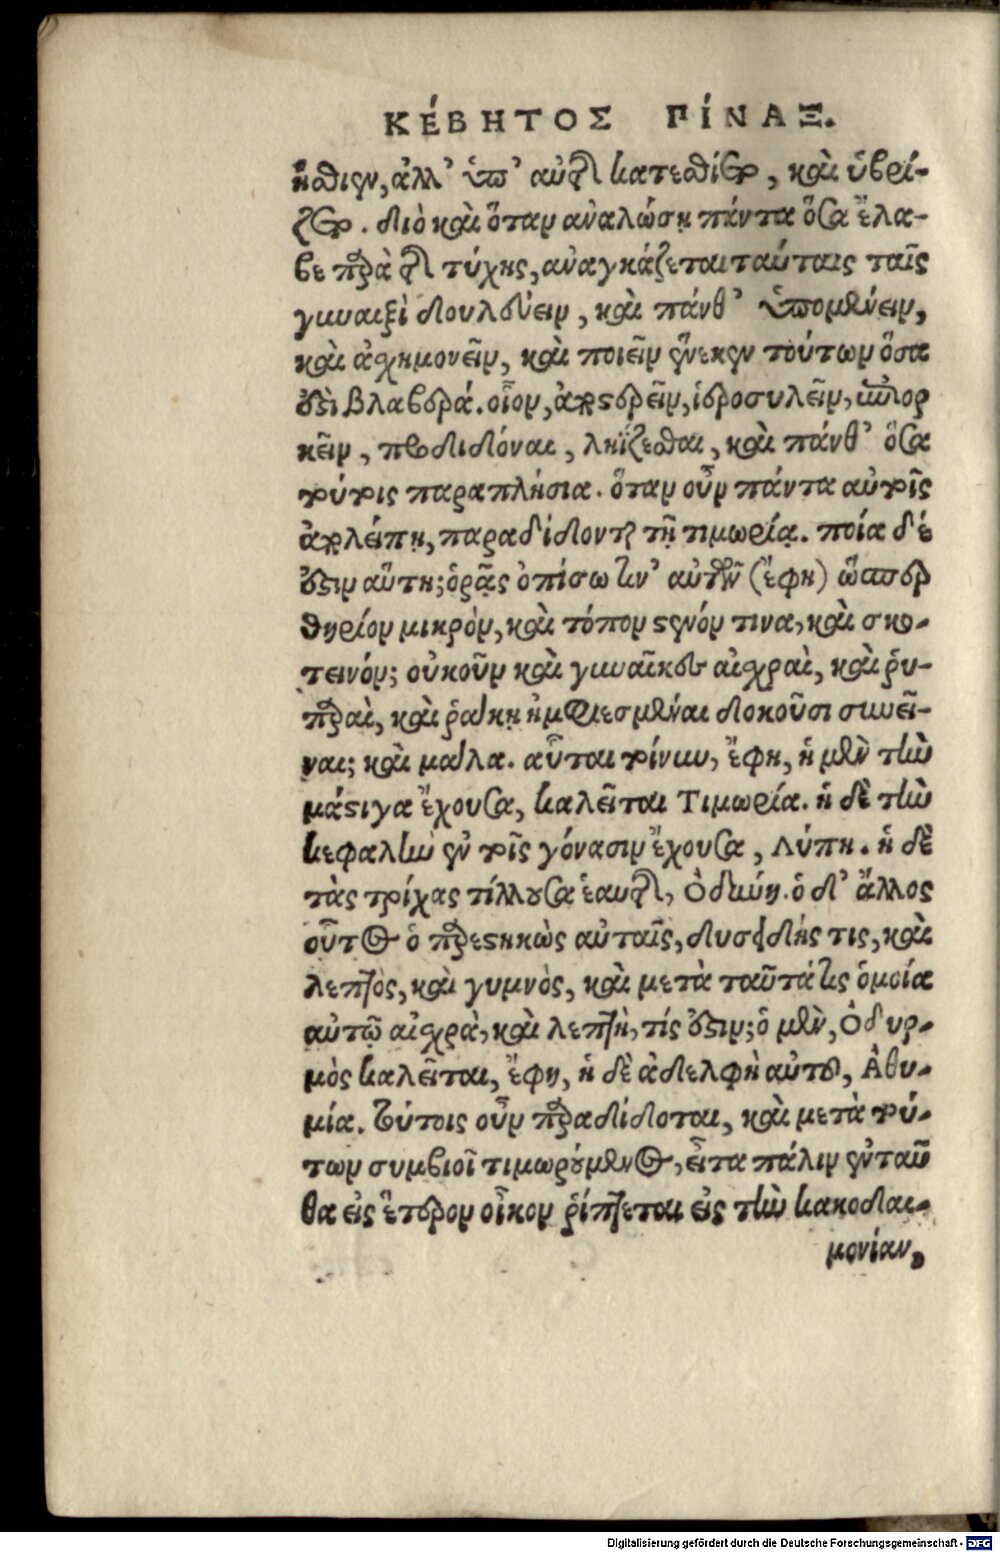 ΚΈΒΗΤΟΣ ΠΊΝΑΞ.
ἤσθιεν, ἀλλ' ὑπ' αὐτῆς κατεσθίετο, καὶ ὑβρί-
ζετο. διὸ καὶ ὅταν ἀναλώσῃ πάντα ὅσα ἔλα-
βε παρὰ τῆς τύχης, ἀναγκάζεται ταύταις ταῖς
γυναιξὶ δουλεύειν, καὶ πάνθ' ὑπομένειν,
καὶ ἀσχημονεῖν, καὶ ποιεῖν ἕνεκεν τούτων ὅσα
ἐστὶ βλαβερά. οἷον, ἀποστερεῖν, ἱεροσυλεῖν, ἐπιορ
κεῖν, προδιδόναι, ληΐζεσθαι, καὶ πάνθ' ὅσα
τούτοις παραπλήσια. ὅταν οὖν πάντα αὐτοῖς
ἐπιλείπῃ, παραδίδονται τῇ τιμωρίᾳ. ποία δέ
ἐστιν αὕτη; ὁρᾷς ὀπίσω τὶν' αὐτῶν (ἔφη) ὥσπερ
θηρίον μικρὸν, καὶ τόπον στενόν τινα, καὶ σκο-
τεινόν; οὐκοῦν καὶ γυναῖκες αἰσχραὶ, καὶ ῥυ-
παραὶ, καὶ ῥάκη ἠμφιεσμέναι δοκοῦσι συνεῖ-
ναι; καὶ μάλα. αὗται τοίνυν, ἔφη, ἡ μὲν τὴν
μάστιγα ἔχουσα, καλεῖται Τιμωρία. ἡ δὲ τὴν
κεφαλὴν ἐν τοῖς γόνασιν ἔχουσα, Λύπη. ἡ δὲ
τὰς τρίχας τίλλουσα ἑαυτῆς, Ὀδύνη. ὁ δ' ἄλλος
οὗτος ὁ παρεστηκὼς αὐταῖς, δυσειδής τις, καὶ
λεπτὸς, καὶ γυμνὸς, καὶ μετὰ ταῦτά τις ὁμοία
αὐτῷ αἰσχρὰ, καὶ λεπτὴ, τίς ἐστιν; ὁ μὲν, Ὀδυρ-
μὸς καλεῖται, ἔφη, ἡ δὲ ἀδελφὴ αὐτοῦ, Ἀθυ-
μία. τούτοις οὖν παραδίδοται, καὶ μετὰ τού-
των συμβιοῖ τιμωρούμενος, εἶτα πάλιν ἐνταῦ
θα εἰς ἕτερον οἶκον ῥίπτεται εἰς τὴν κακοδαι-
μονίαν,
Digitalisierung gefördert durch die Deutsche Forschungsgemeinschaft - DFG